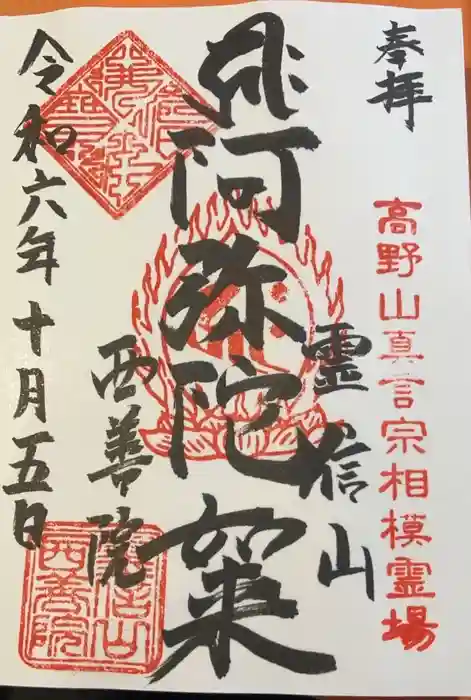 奉拝
高野山真言宗相模霊場
霊信山
阿弥陀如来
西善院
令和六年十月五日
西善院